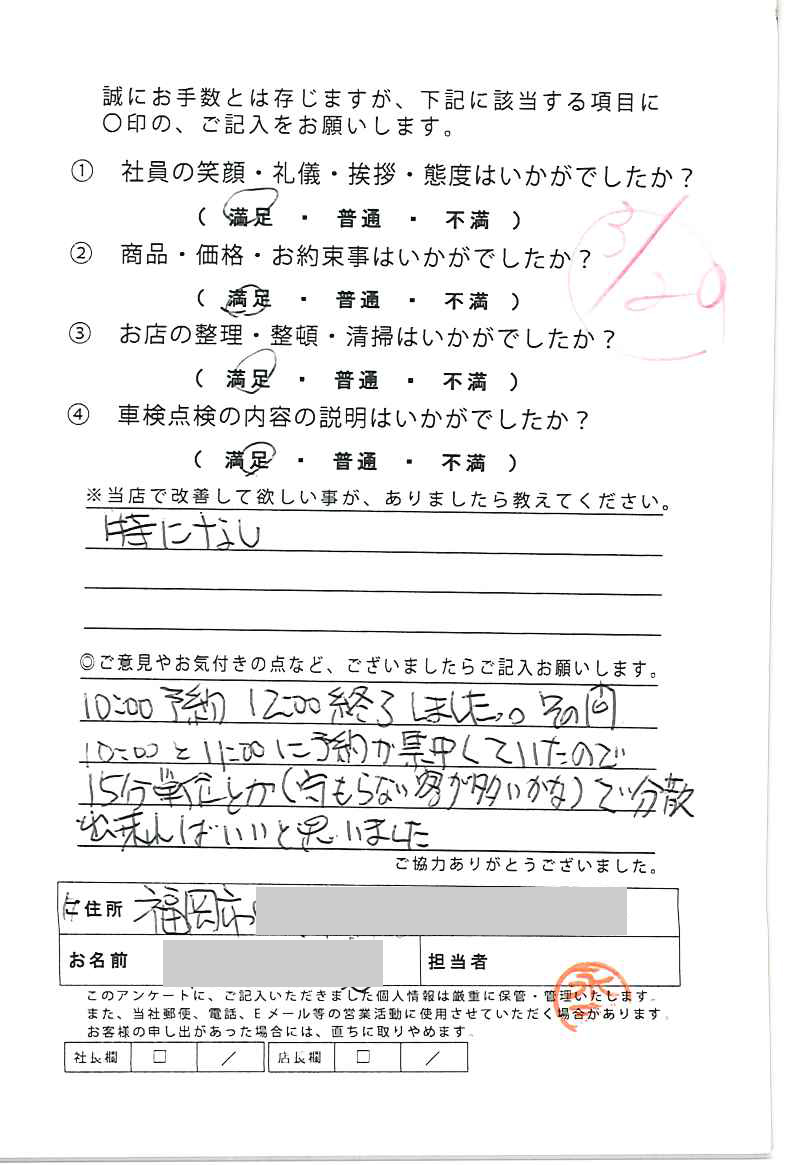 誠にお手数とは存じますが、下記に該当する項目に
〇印の、ご記入をお願いします。
① 社員の笑顔・礼儀・挨拶・態度はいかがでしたか？
（ 満足 ・ 普通 ・ 不満 ）
② 商品・価格・お約束事はいかがでしたか？
（ 満足 ・ 普通 ・ 不満 ）
3/29
③ お店の整理・整頓・清掃はいかがでしたか？
（ 満足 ・ 普通 ・ 不満 ）
④ 車検点検の内容の説明はいかがでしたか？
（ 満足 ・ 普通 ・ 不満 ）
※当店で改善して欲しい事が、ありましたら教えてください。
特になし
◎ご意見やお気付きの点など、ございましたらご記入お願いします。
10:00予約 12:00終了しました。その間
10:00と11:00に予約が集中していたので
15分単位とか(守もらない客が多いかな)で分散
出来ればいいと思いました
ご協力ありがとうございました。
ご住所 福岡市
お名前 担当者
このアンケートに、ご記入いただきました個人情報は厳重に保管・管理いたします。
また、当社郵便、電話、Eメール等の営業活動に使用させていただく場合があります。
お客様の申し出があった場合には、直ちに取りやめます。
社長欄 □ ／ 店長欄 □ ／